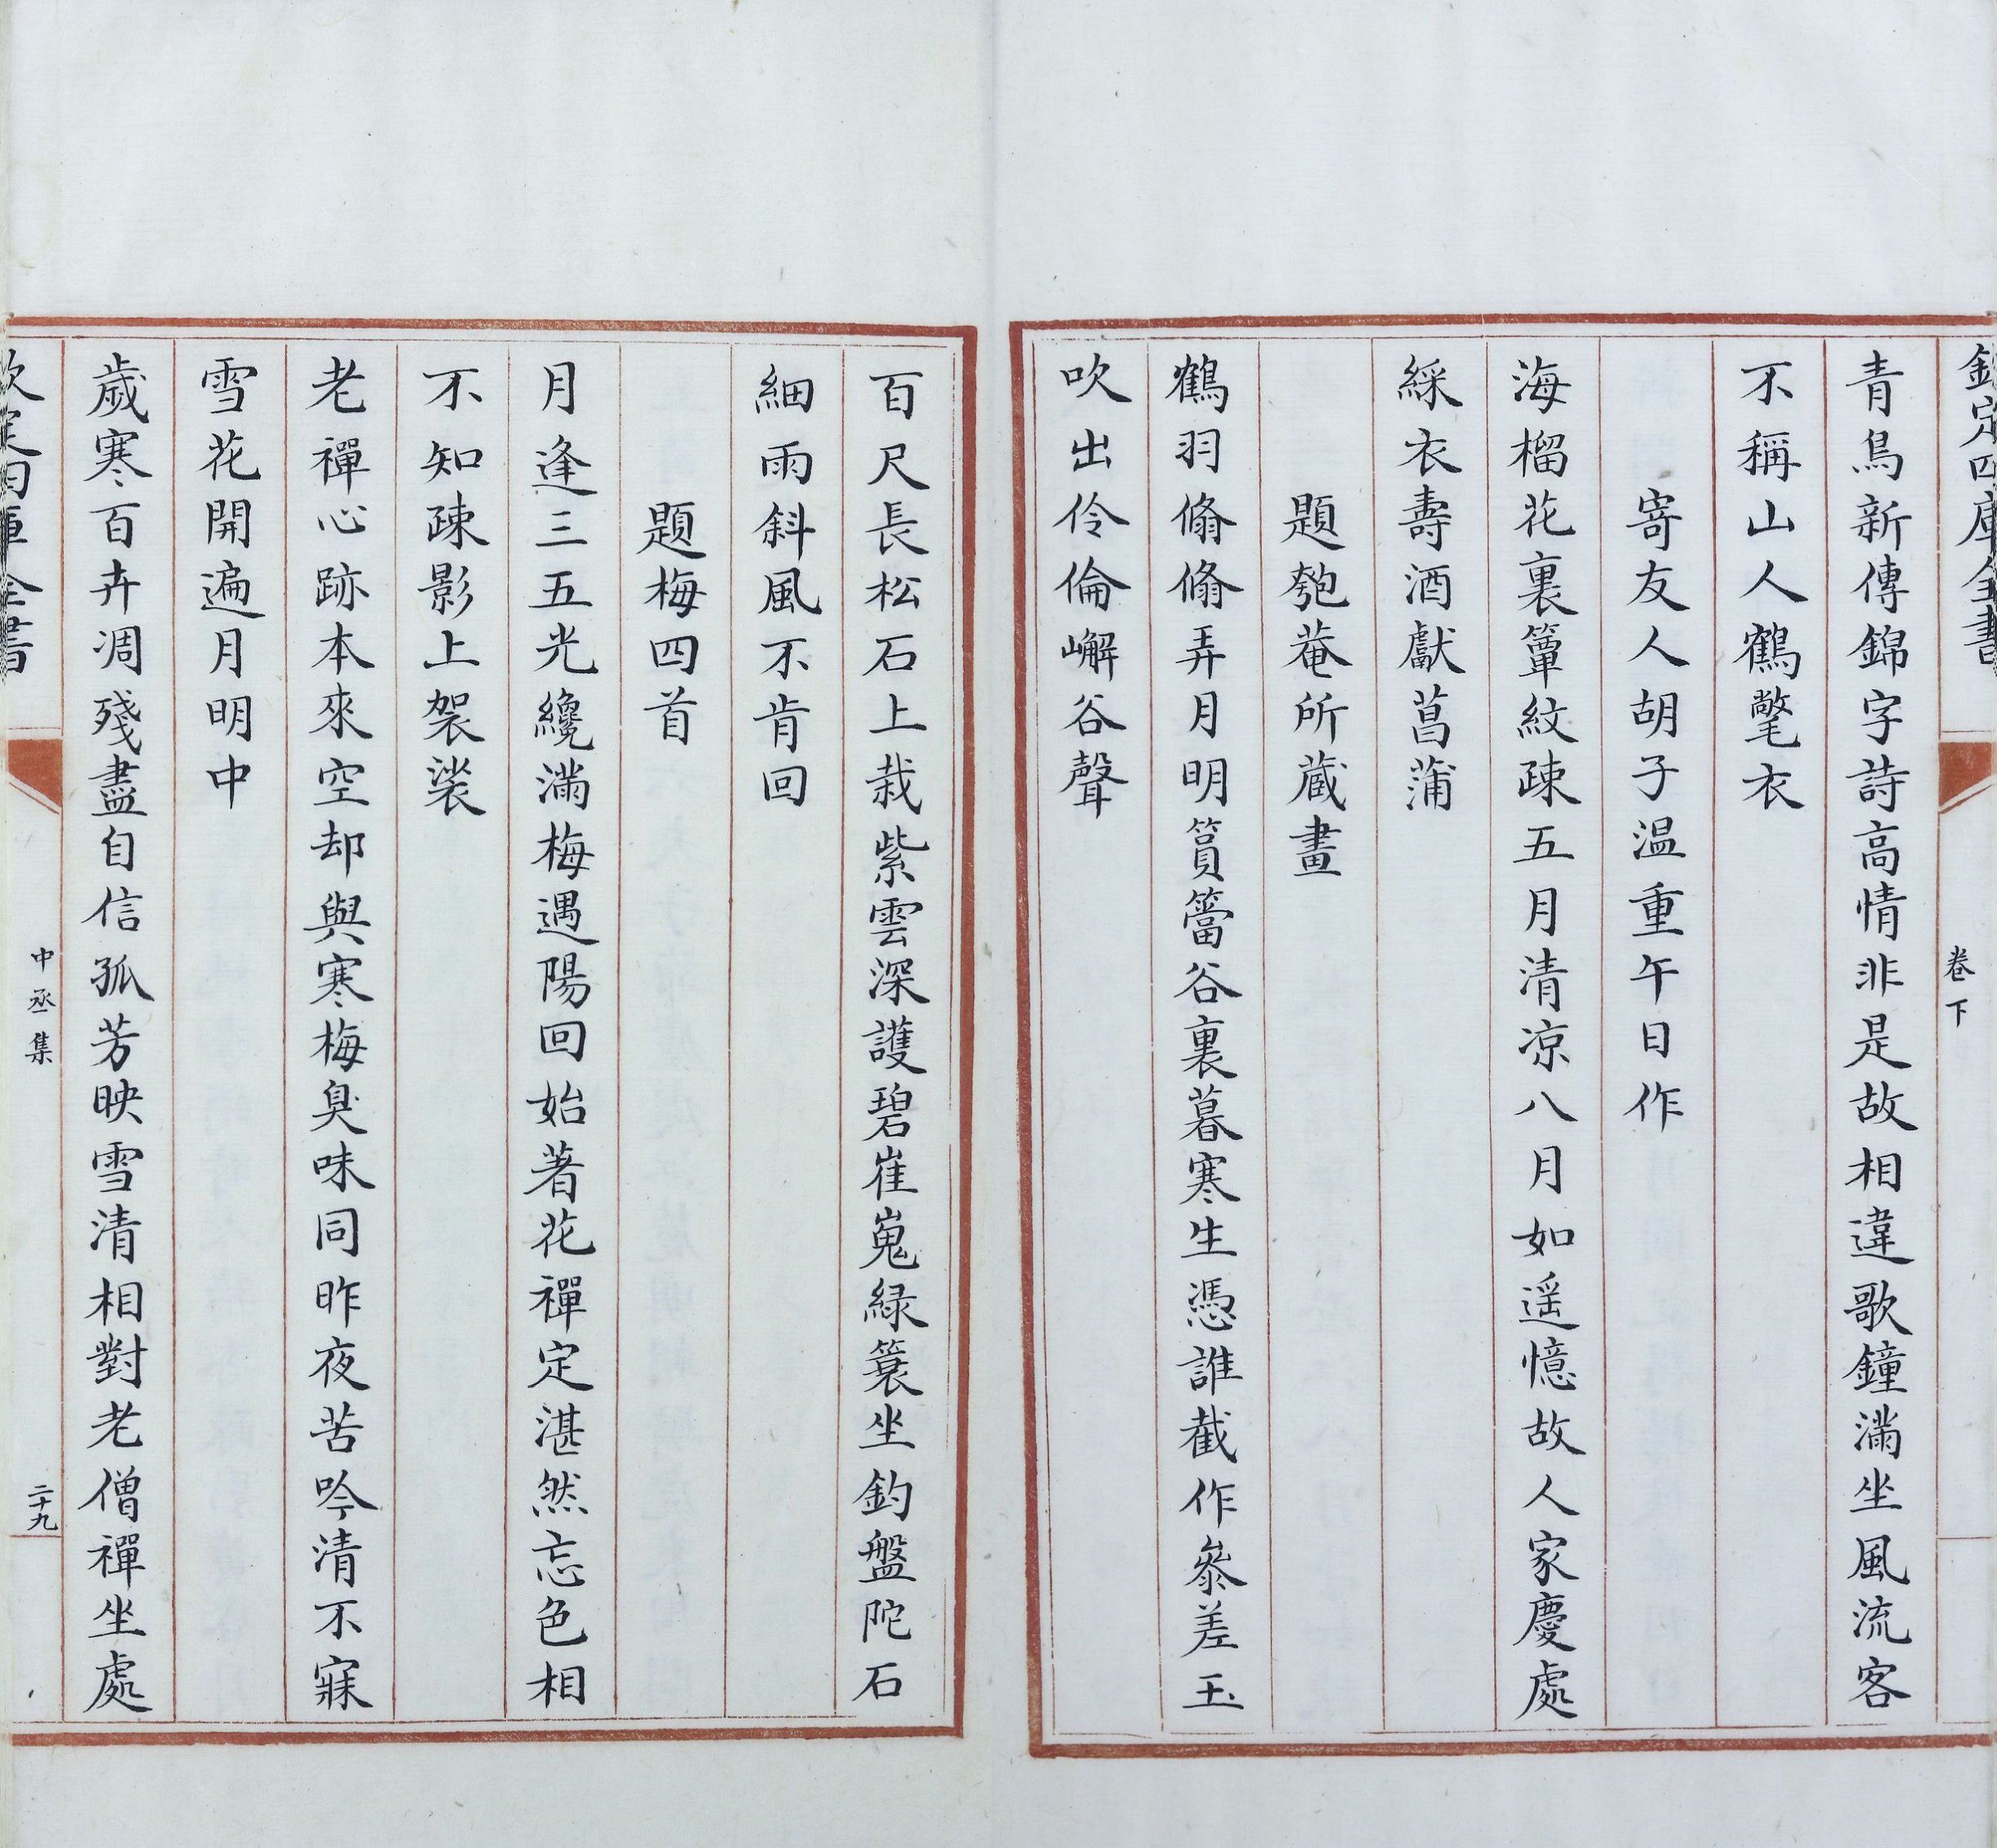 欽定四庫全書
卷下
青鳥新傳錦字詩高情非是故相違歌鐘滿坐風流客
不稱山人鶴氅衣
寄友人胡子温重午日作
海榴花裏簟紋疎五月清凉八月如遥憶故人家慶處
綵衣壽酒獻菖蒲
題匏菴所蔵畫
鶴羽翛翛弄月明篔簹谷裏暮寒生憑誰截作參差玉
吹出伶倫嶰谷聲
百尺長松石上栽紫雲深護碧崔嵬緑蓑坐釣盤陀石
細雨斜風不肯回
題梅四首
月逢三五光纔滿梅遇陽回始著花禪定湛然忘色相
不知疎影上袈裟
老禪心跡本來空却與寒梅臭味同昨夜苦吟清不寐
雪花開遍月明中
歲寒百卉凋殘盡自信孤芳映雪清相對老僧禪坐處
欽定四庫全書
中丞集
二十九